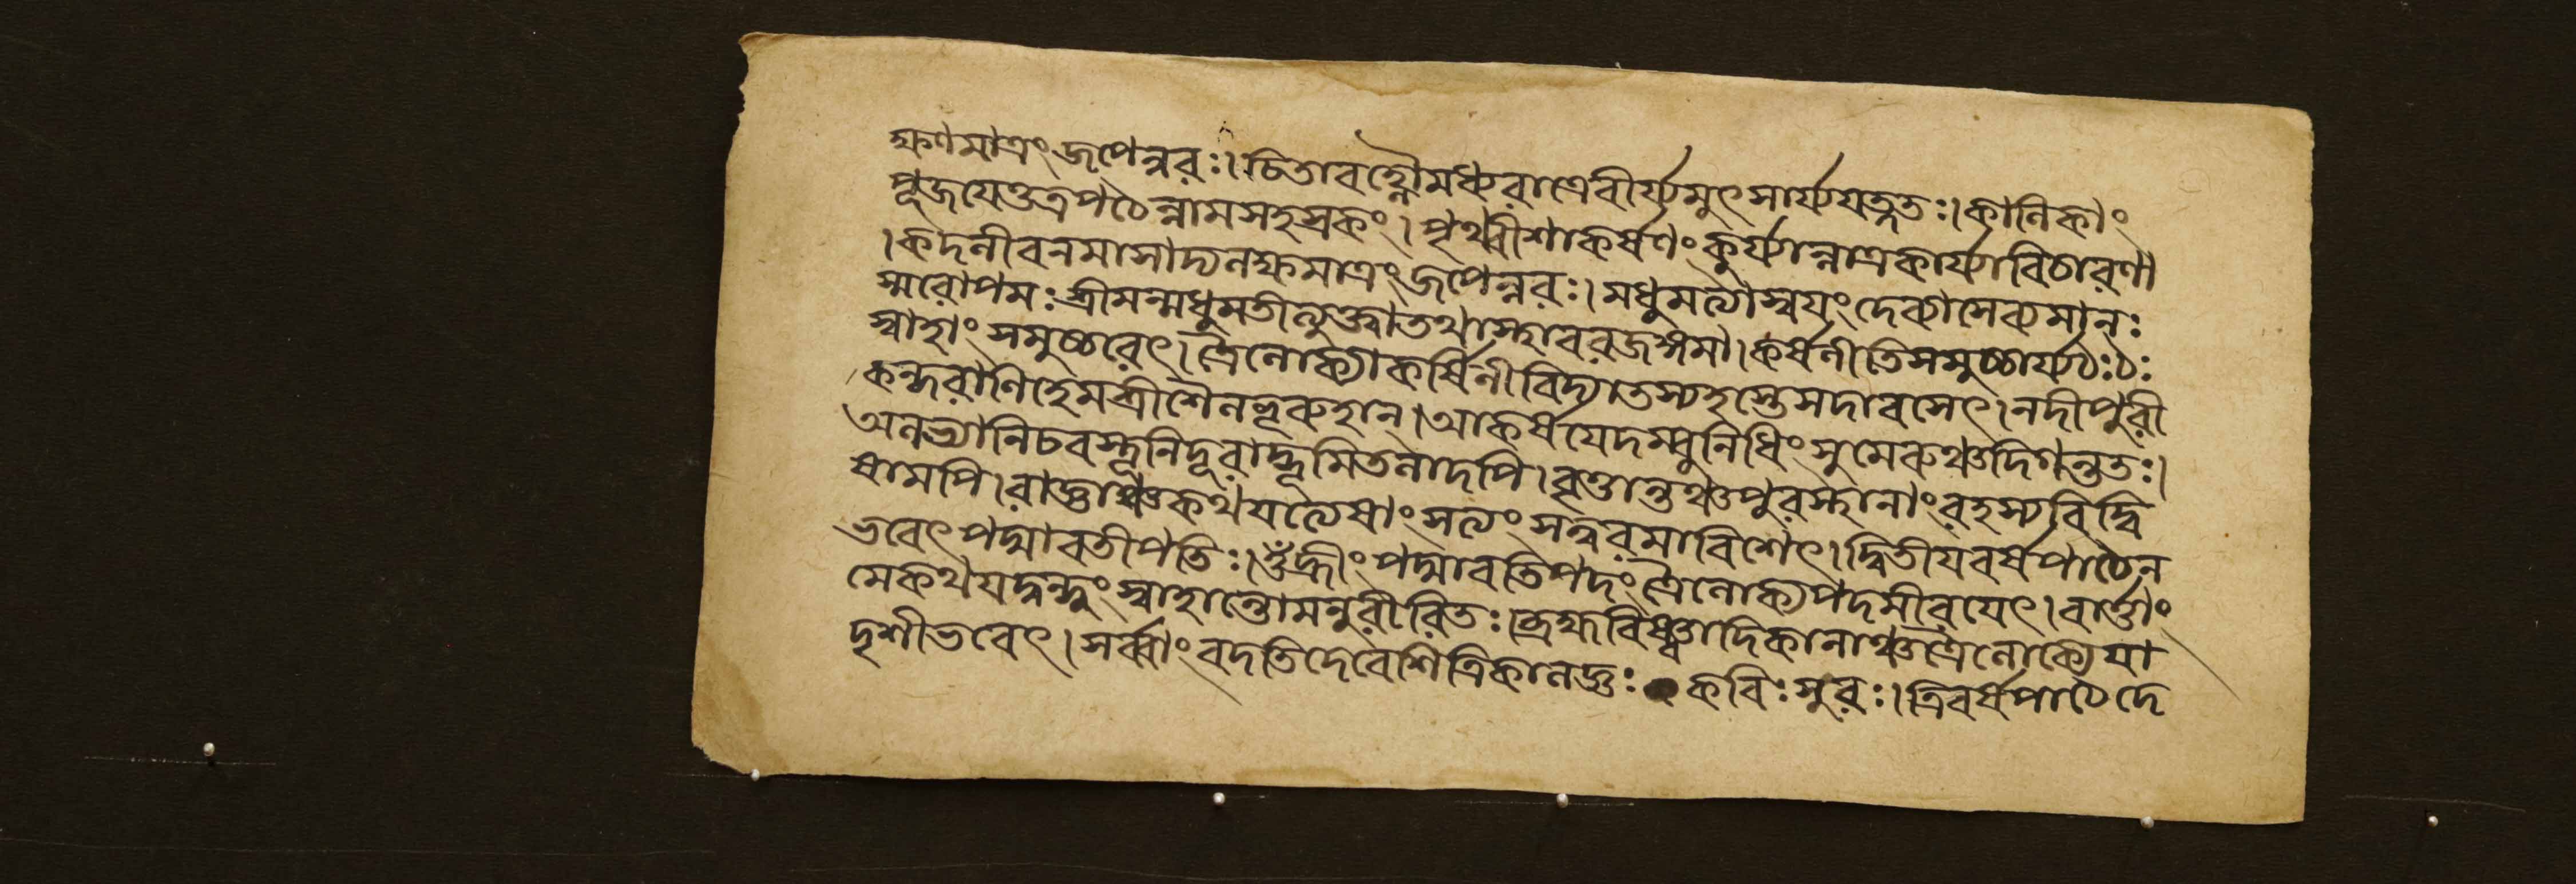 ক্ষণমাত্রং জপেন্নরঃ। চিতাবহ্নৌ মধ্যরাত্রে বীর্য্যমুৎসার্য্য যত্নতঃ। কালিকাং
পূজয়েত্তত্র পঠেন্নামসহস্রকং। পৃথ্বীশাকর্ষণং কুর্য্যান্নাত্র কার্য্যা বিচারণা
। কদলীবনমাসাদ্য লক্ষমাত্রং জপেন্নরঃ। মধুমত্যা স্বয়ং দেব্যা সেব্যমানঃ
স্মরোপমঃ শ্রীমন্মধুমতীত্যুক্ত্বা তথা স্থাবরজঙ্গমা। কর্ষণীতি সমুচ্চার্য্য ঠঃ ঠঃ
স্বাহাং সমুচ্চরেৎ। ত্রৈলোক্যাকর্ষিণী বিদ্যা তস্য হস্তে সদা বসেৎ। নদীপুরী
কন্দরাণি হেমস্ত্রীশৈলভূরুহান্। আকর্ষয়েদম্বুনিধিং সুমেরুঞ্চ দিগন্ততঃ।
অলভ্যানি চ বস্তূনি দূরাদ্ভূমিতলাদপি। বৃত্তান্তঞ্চ পুরস্থানাং রহস্যবিদ্বি
ষামপি। রাজ্ঞাঞ্চ কথয়ত্যেষাং সত্যং সত্বরমাবিশেৎ। দ্বিতীয়বর্ষপাঠেন
ভবেৎ পদ্মাবতীপতিঃ। ওঁ হ্রীং পদ্মাবতিপদং ত্রৈলোক্যপদমীরয়েৎ। বার্ত্তাং
মে কথয়দ্বন্দ্বং স্বাহান্তো মনুরীরিতঃ। ব্রহ্মবিষ্ণ্বাদিকানাঞ্চ ত্রৈলোক্যে যা
দৃশী ভবেৎ। সর্ব্বাং বদতি দেবেশি ত্রিকালজ্ঞঃ কবিঃ সুরঃ। ত্রিবর্ষপাঠে দে